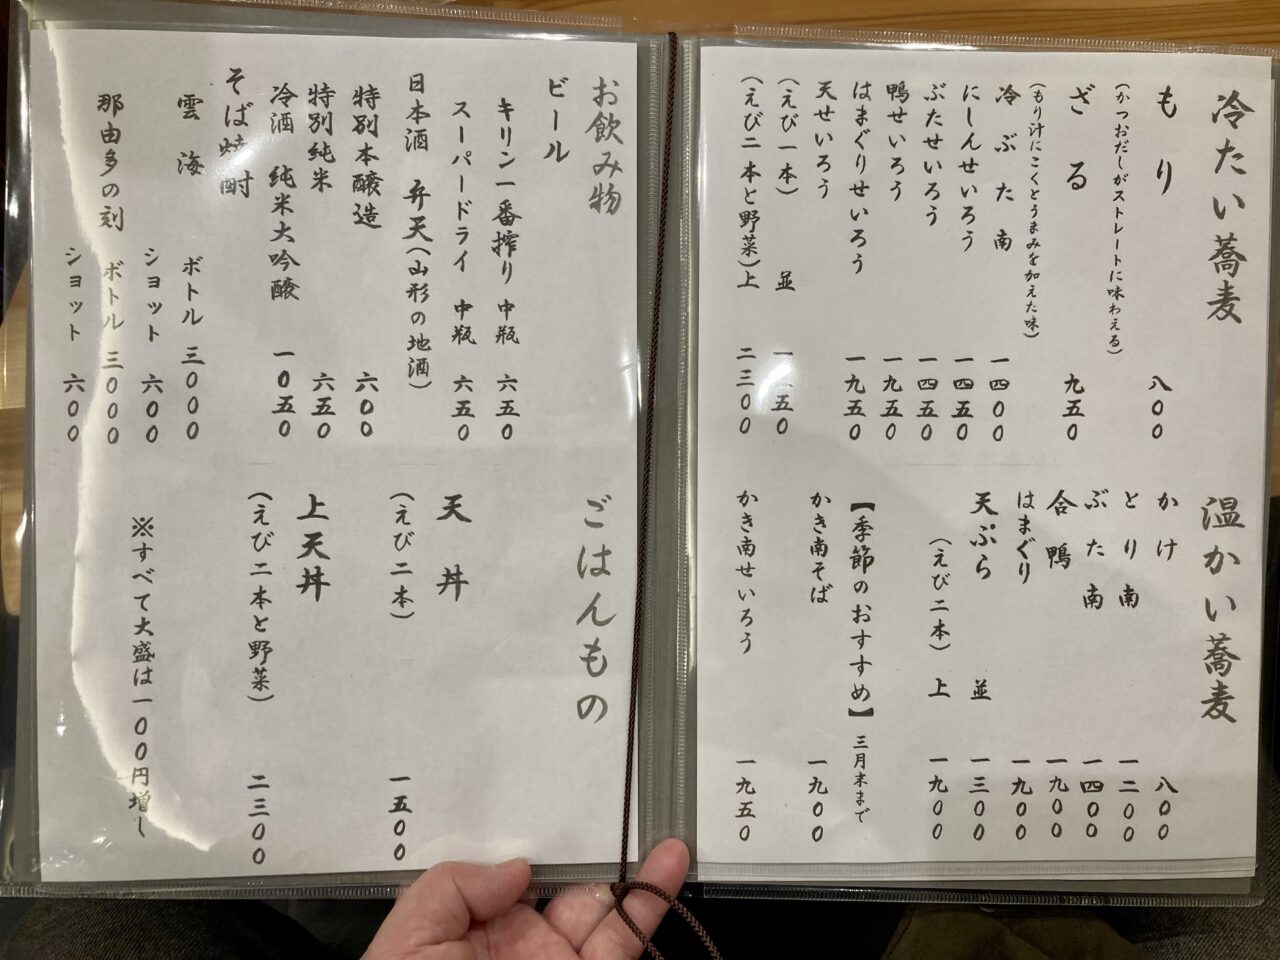 冷たい蕎麦
もり 八〇〇
(かつおだしがストレートに味わえる)
ざる 九五〇
(もり汁にこくとうまみを加えた味)
冷ぶた南 一四〇〇
にしんせいろう 一四五〇
ぶたせいろう 一四五〇
鴨せいろう 一九五〇
はまぐりせいろう 一九五〇
天せいろう
(えび一本) 並
(えび二本と野菜)上 二三〇〇
温かい蕎麦
かけ 八〇〇
とり南 一二〇〇
ぶた南 一四〇〇
合鴨 一九〇〇
はまぐり 一九〇〇
天ぷら 並 一三〇〇
(えび二本) 上 一九〇〇
【季節のおすすめ】三月末まで
かき南そば 一九〇〇
かき南せいろう 一九五〇
お飲み物
ビール
キリン一番搾り 中瓶 六五〇
スーパードライ 中瓶 六五〇
日本酒 弁天(山形の地酒)
特別本醸造 六〇〇
特別純米 六五〇
冷酒 純米大吟醸 一〇五〇
そば焼酎
雲海 ボトル 三〇〇〇
ショット 六〇〇
那由多の刻 ボトル 三〇〇〇
ショット 六〇〇
ごはんもの
天丼
(えび二本) 一五〇〇
上天丼
(えび二本と野菜) 二三〇〇
※すべて大盛は一〇〇円増し